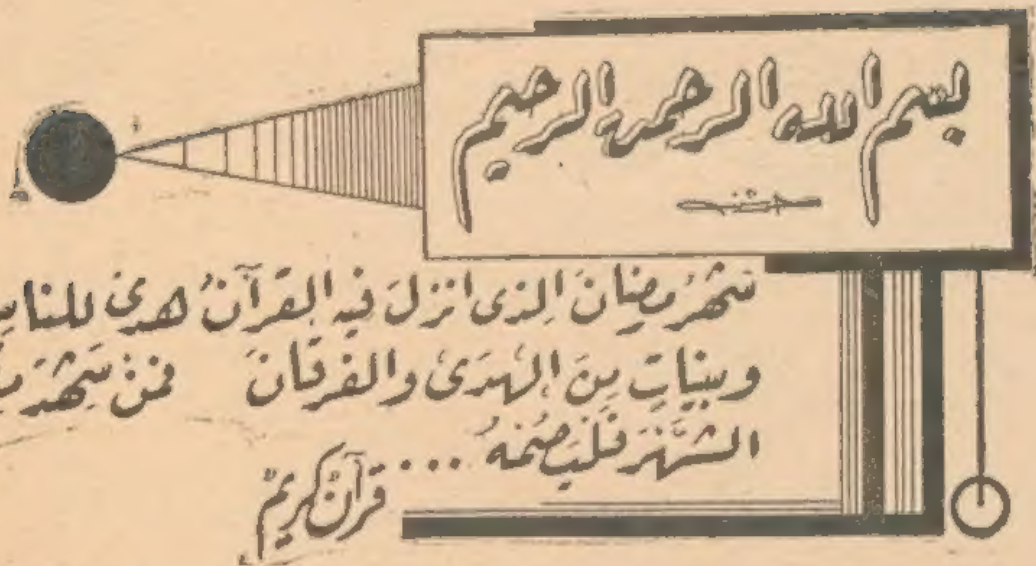 بسم الله الرحمن الرحيم
شهرُ رمضانَ الذى انزلَ فيه القرآنُ هدىً للناسِ
وبيناتٍ مِنَ الهُدَىٰ والفرقانَ فمنْ شَهِدَ
الشَّهْرَ فَلْيَصُمْهُ ...
قرآنٌ كريمٌ